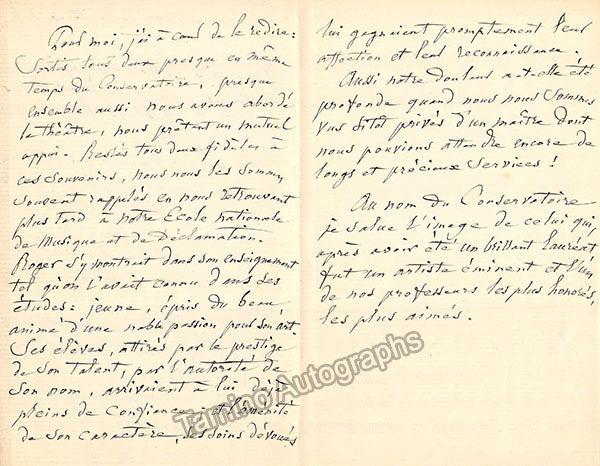 Pour moi, j'ai à cœur de le redire :
Sortis tous deux presque en même
temps du Conservatoire, presque
ensemble aussi nous avons abordé
le théâtre, nous prêtant un mutuel
appui. Restés tous deux fidèles à
ces souvenirs, nous nous les sommes
souvent rappelés en nous retrouvant
plus tard à notre École nationale
de Musique et de Déclamation.
Roger s'y montrait dans son enseignement
tel qu'on l'avait connu dans ses
études : jeune, épris du beau,
animé d'une noble passion pour son art.
Ses élèves, attirés par le prestige
de son talent, par l'autorité de
son nom, arrivaient à lui déjà
pleins de confiance ; et l'aménité
de son caractère, ses soins dévoués
lui gagnaient promptement leur
affection et leur reconnaissance.
Aussi notre douleur a-t-elle été
profonde quand nous nous sommes
vus sitôt privés d'un maître dont
nous pouvions attendre encore de
longs et précieux services !
Au nom du Conservatoire
je salue l'image de celui qui,
après avoir été un brillant lauréat
fut un artiste éminent et l'un
de nos professeurs les plus honorés,
les plus aimés.
Tamino Autographs